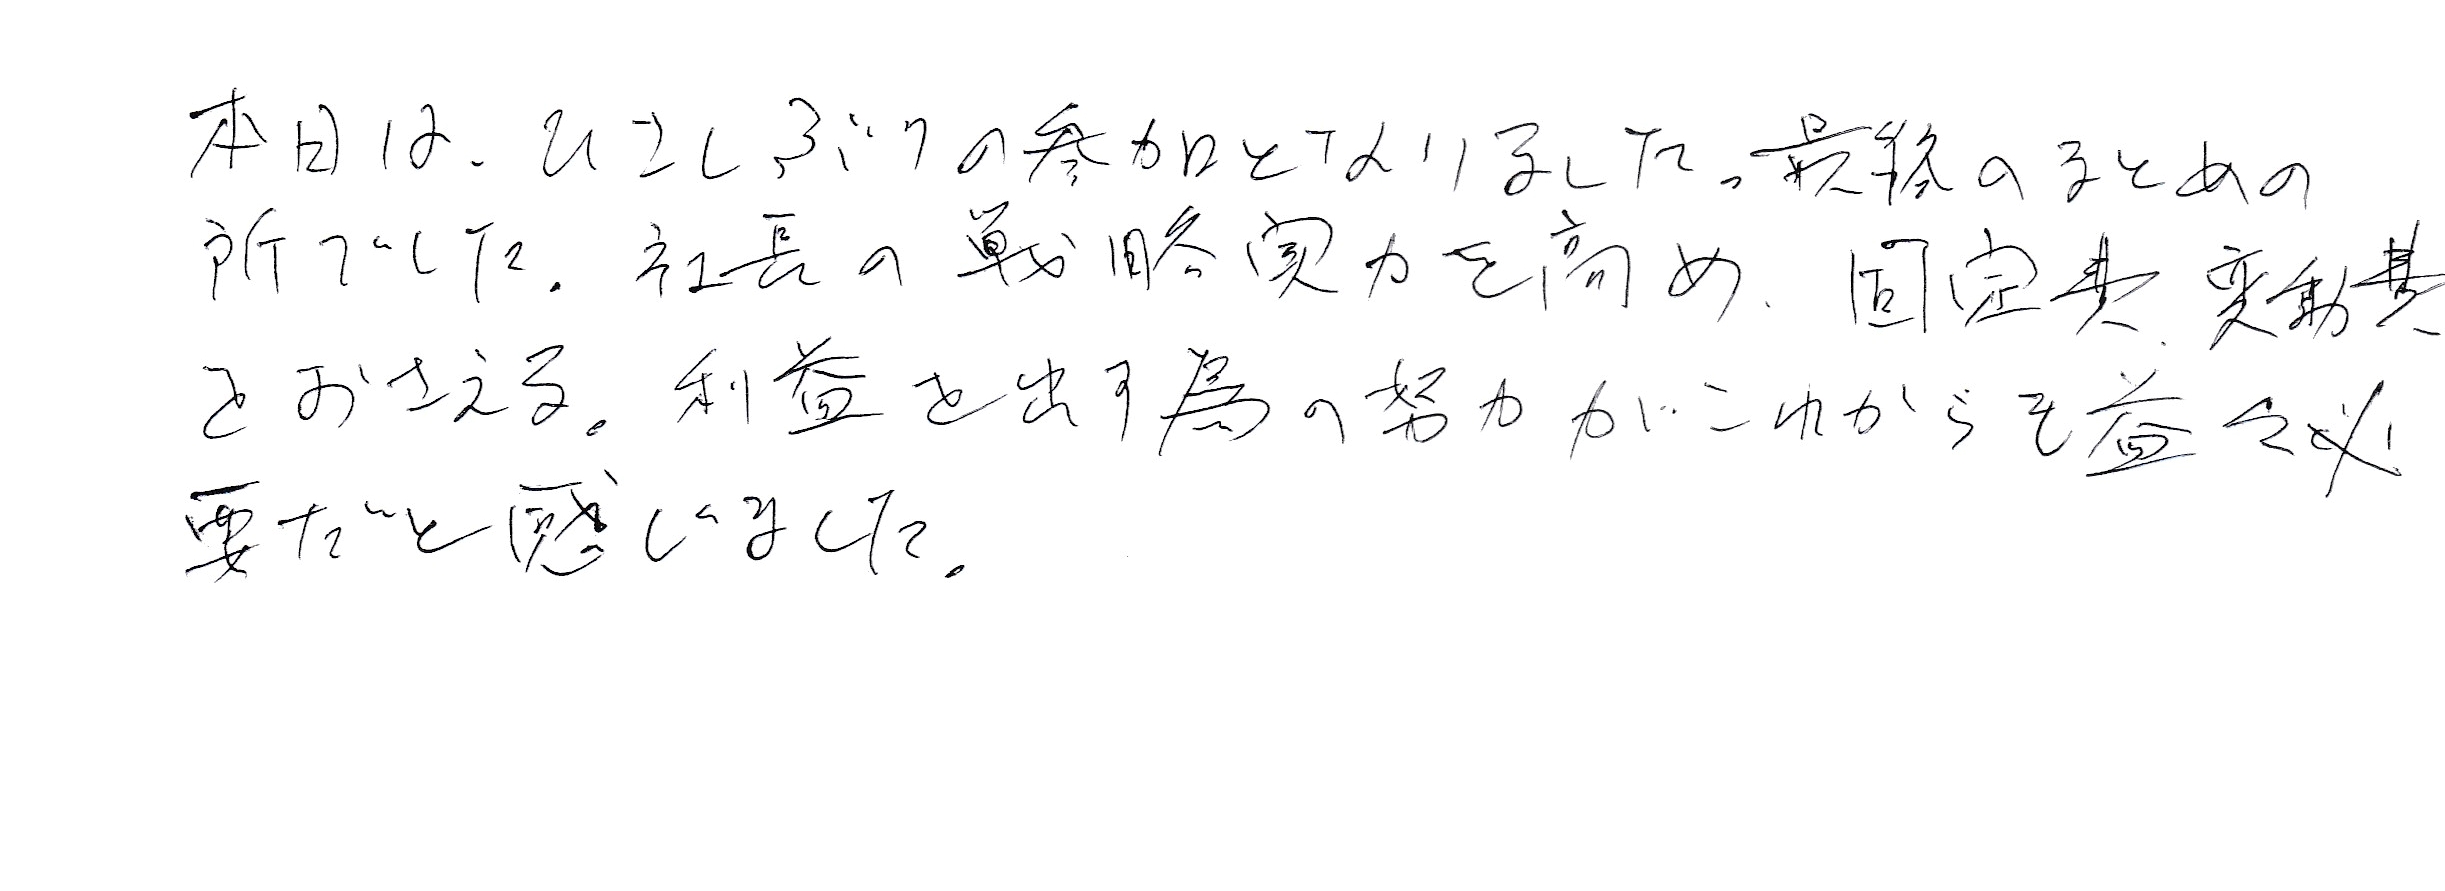 本日は、ひさしぶりの参加となりました。最終のまとめの
所でした。社長の戦略実力を高め、固定費、変動費
をおさえる。利益を出す為の努力がこれからも益々必
要だと感じました。